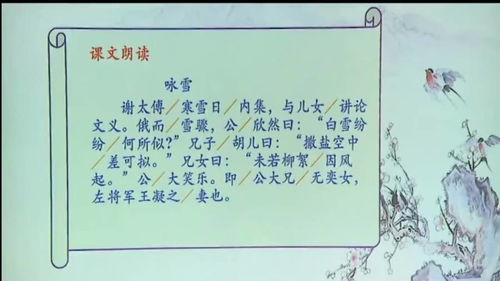 课文朗读
咏雪
谢太傅/寒雪日/内集，与儿女/讲论
文义。俄而/雪骤，公/欣然曰：“白雪纷
纷/何所似？”兄子/胡儿曰：“撒盐空中
/差可拟。”兄女曰：“未若柳絮/因风
起。”公/大笑乐。即/公大兄/无奕女，
左将军王凝之/妻也。